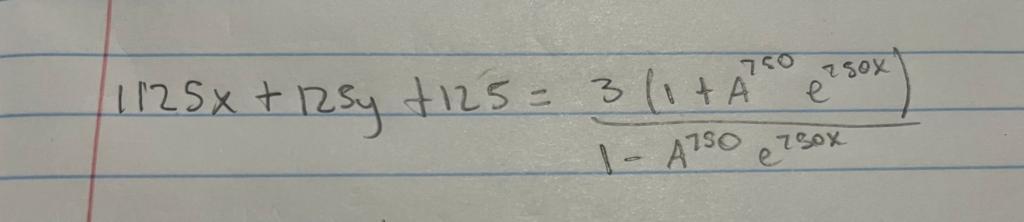 1125x + 125y + 125 = \frac{3 (1 + A^{750} e^{750x})}{1 - A^{750} e^{750x}}